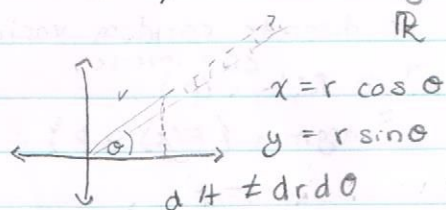 ℝ
r
x = r cos θ
θ
y = r sin θ
dA ≠ dr dθ